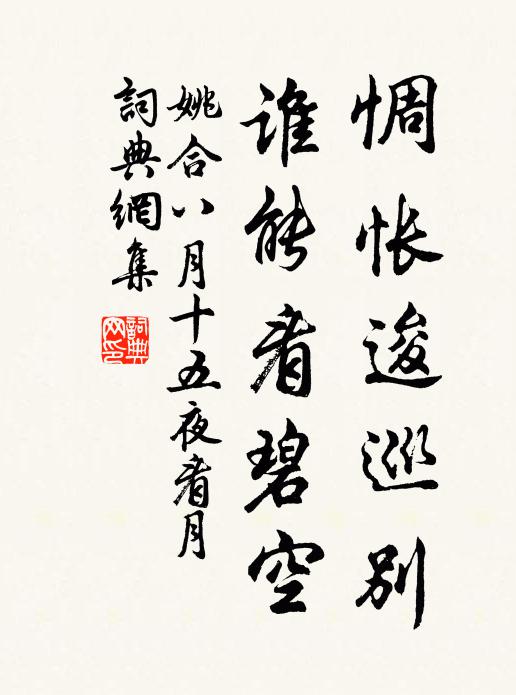 惆怅逡巡别
谁能看碧空
姚合八月十五夜看月
詞典網集
詞典网印